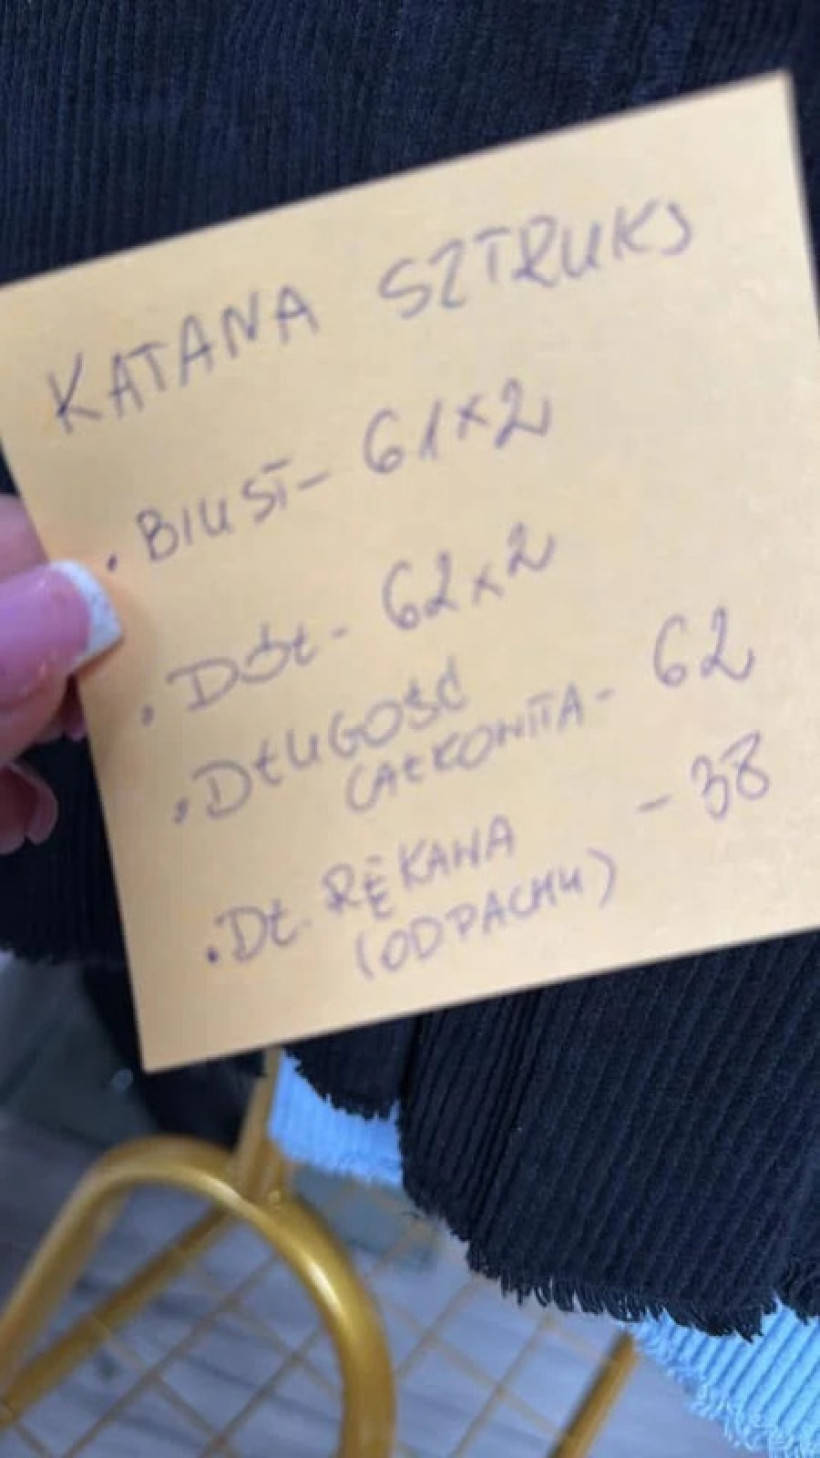 KATANA SZTRUKS
• BIUST - 61x2
• DÓŁ - 62x2
• DŁUGOŚĆ
CAŁKOWITA - 62
• DŁ. RĘKAWA - 38
(OD PACHY)